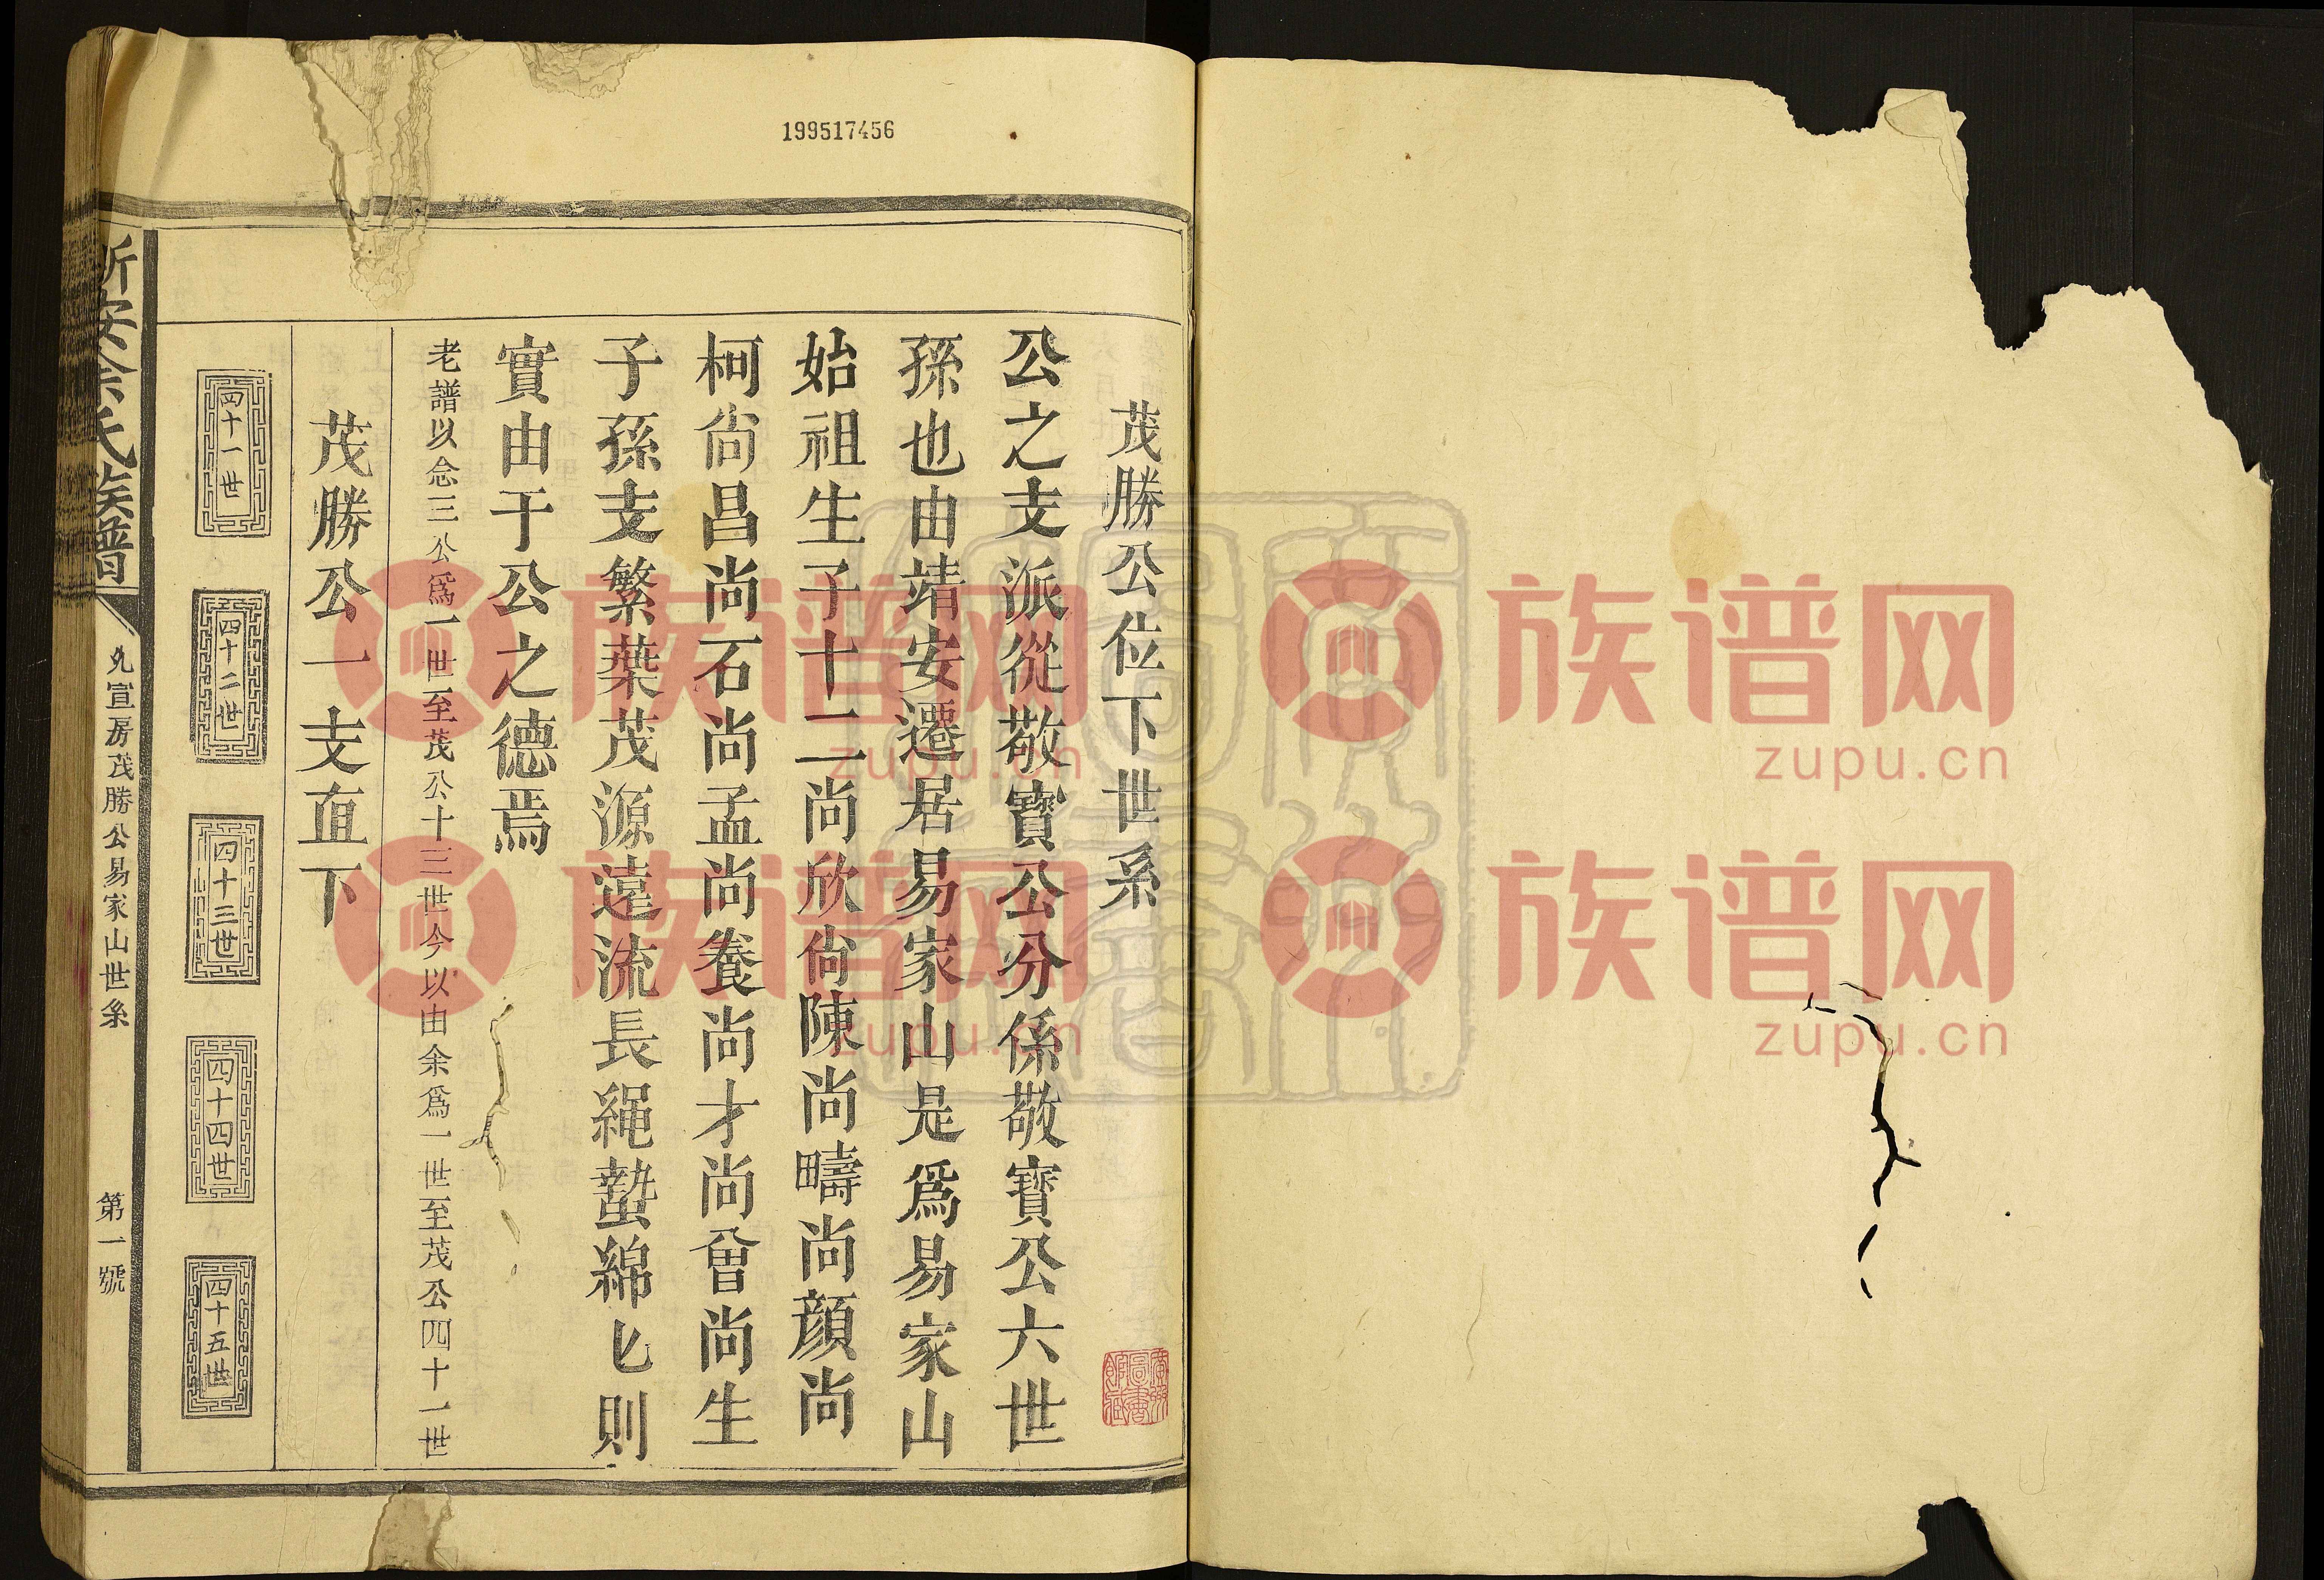 199517456
茂勝公位下世系
公之支派從敬寶公分係敬寶公六世
孫也由靖安遷居易家山是爲易家山
始祖生子十二尚欣尚陳尚疇尚顔尚
柯尚昌尚石尚孟尚養尚才尚曾尚生
子孫支繁葉茂源遠流長繩蟄綿匕則
實由于公之德焉
老譜以念三公爲一世至茂公十三世今以由余爲一世至茂公四十一世
茂勝公一支直下
四十一世
四十二世
四十三世
四十四世
四十五世
新安余氏族譜
允宣房茂勝公易家山世系
第一號
族谱网
zupu.cn
族谱网
zupu.cn
族谱网
zupu.cn
族谱网
zupu.cn